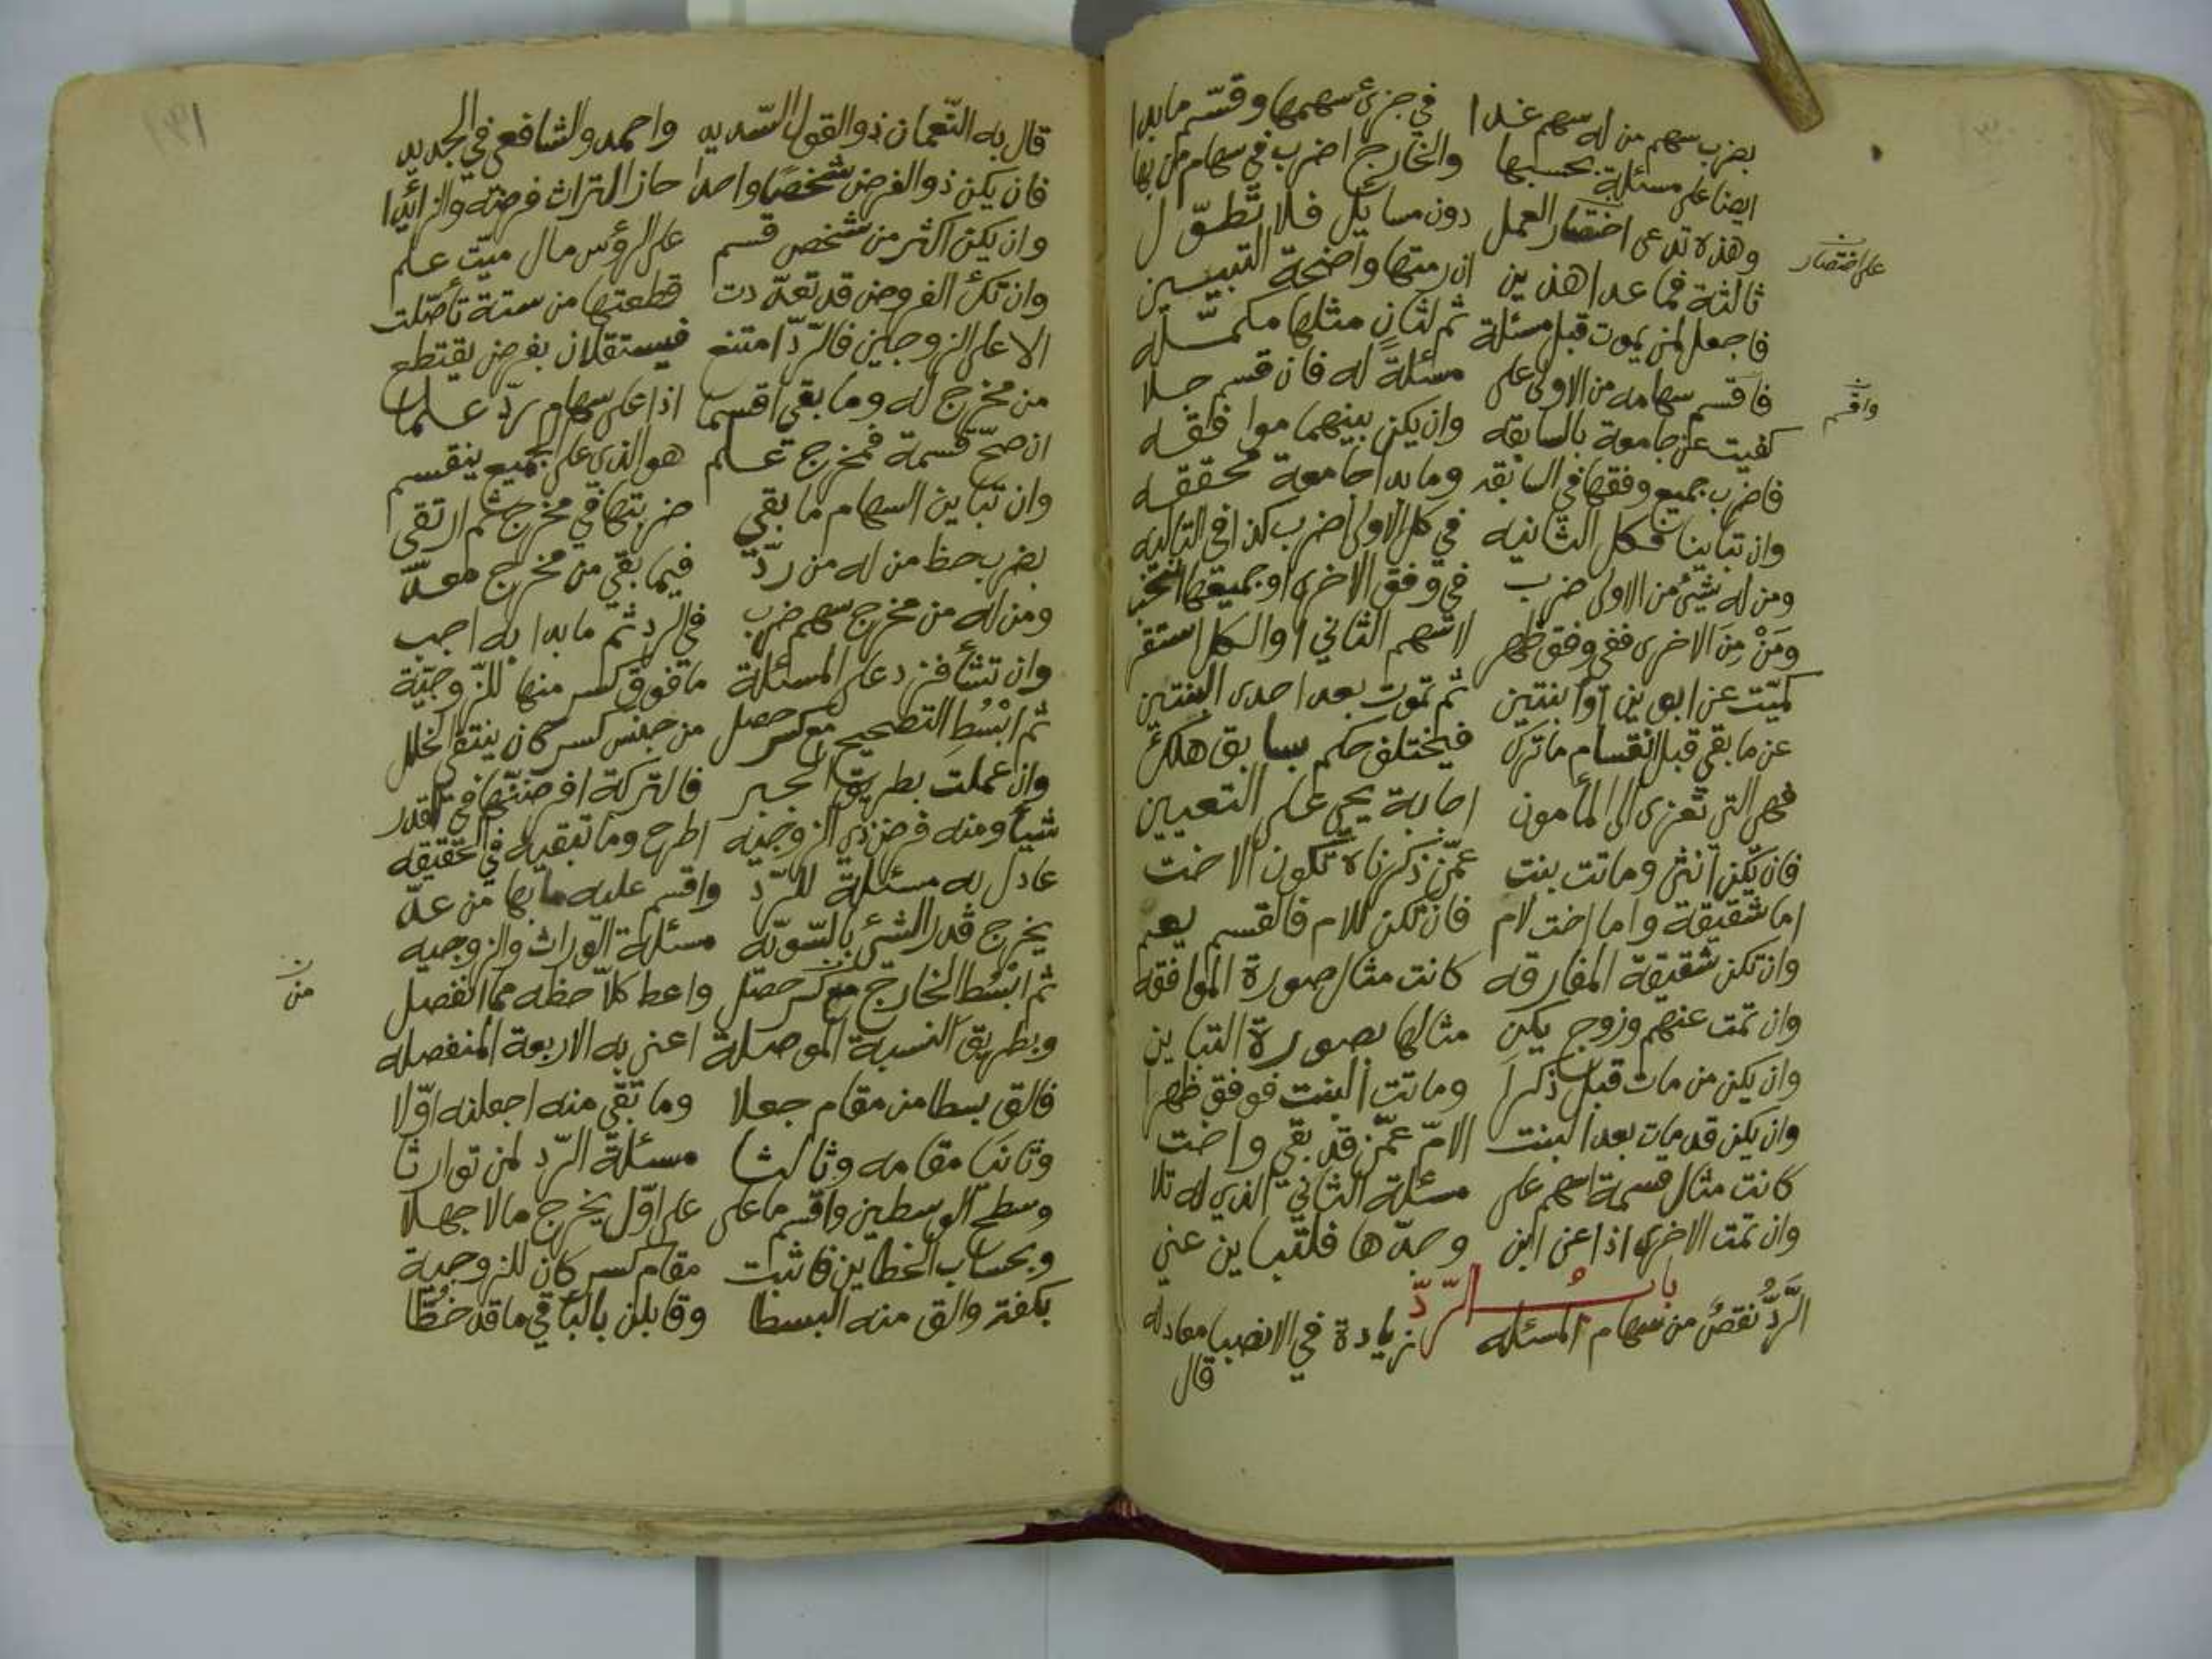 بضرب سهم من له سهم غدا في جزئ سهمها وقسم ما بدا
ايضا على مسئلة بحسبها والخارج اضرب في سهام من بها
وهذه تدعى اختصار العمل دون مسائل فلا تطول
على اختصار
ثالثة فما عدا هذين ان رمتها واضحة التبيين
فاجعل لمن يموت قبل مسئلة ثم لثان مثلها مكمله
فاقسم سهامه من الاولى على مسئلة له فان قسم حلا
واقسم
كفيت عن جامعة بالسابقه وان يكن بينهما موافقه
فاضرب جميع وفقها في السابقه وما بدا جامعة محققه
وان تباينا فكل الثانيه في كل الاولى اضرب كذا في التاليه
ومن له شيئ من الاولى ضرب في وفق الاخرى او جميعها
ومن من الاخرى ففي وفق ظهر لاسهم الثاني او الكل استقر
كميت عن ابوين او ابنتين ثم تموت بعد احدى البنتين
عن ما بقي قبل انقسام ما ترك فيختلف حكم بسابق هلك
فهي التي تعزى الى المأمون اجابة يحيى على التعيين
فان يكن انثى وماتت بنت عمن ذكرناه تكون الاخت
اما شقيقة واما اخت لام فان تكن للام فالقسم يعم
وان تكن شقيقة المفارقه كانت مثال صورة الموافقه
وان تمت عنهم وزوج يكن مثالها بصورة التباين
وان يكن من مات قبل ذكرا وماتت البنت فوفق ظهرا
وان يكن قد مات بعد البنت الام عمن قد بقي واخت
كانت مثال قسمة اسهم على مسئلة الثاني الذي له تلا
وان تمت الاخرى اذا عن ابن وجدها فلتباين عني
باب الرد
الرد نقص من سهام المسئله زيادة في الانصبا معادله
قال
قال به النعمان ذو القول السديد واحمد والشافعي في الجديد
فان يكن ذو الفرض شخصا واحدا حاز التراث فرضه والزائدا
وان يكن اكثر من شخص قسم على الرؤس مال ميت علم
وان تك الفروض قد تعددت قطعتها من ستة تأصلت
الا على الزوجين فالرد امتنع فيستقلان بفرض يقتطع
من مخرج له وما بقي اقسما اذا على سهام رد علما
ان صح قسمة فمخرج علم هو الذي على الجميع ينقسم
وان تباين السهام ما بقي ضربتها في مخرج ثم ارتقي
بضرب حظ من له من رد فيما بقي من مخرج معد
ومن له من مخرج سهم ضرب في الرد ثم ما بدا به اجب
وان تشأ فزد على المسئلة ما فوق كسر منها للزوجية
ثم ابسط التصحيح مع كسر حصل من جنس كسر كان ينتفي الخلل
وان عملت بطريق الجبر فالتركة افرضنها في القدر
شيأ ومنه فرض ذي الزوجيه اطرح وما تبقيه في الحقيقه
عادل به مسئلة للرد واقسم عليه ما بها من عد
يخرج قدر الشئ بالسويه مسئلة الوراث والزوجيه
ثم ابسط الخارج مع كسر حصل واعط كلا حظه مما انفصل
من
وبطريق النسبة الموصلة اعني به الاربعة المنفصله
فالق بسطا من مقام جعلا وما بقي منه اجعلنه اولا
وثانيا مقامه وثالثا مسئلة الرد لمن توارثا
وسطح الوسطين واقسم ما على على اول يخرج ما لا جهلا
وبحساب الخطاين فاثبت مقام كسر كان للزوجية
بكفة والق منه البسطا وقابلن بالباقي ما قد خطا